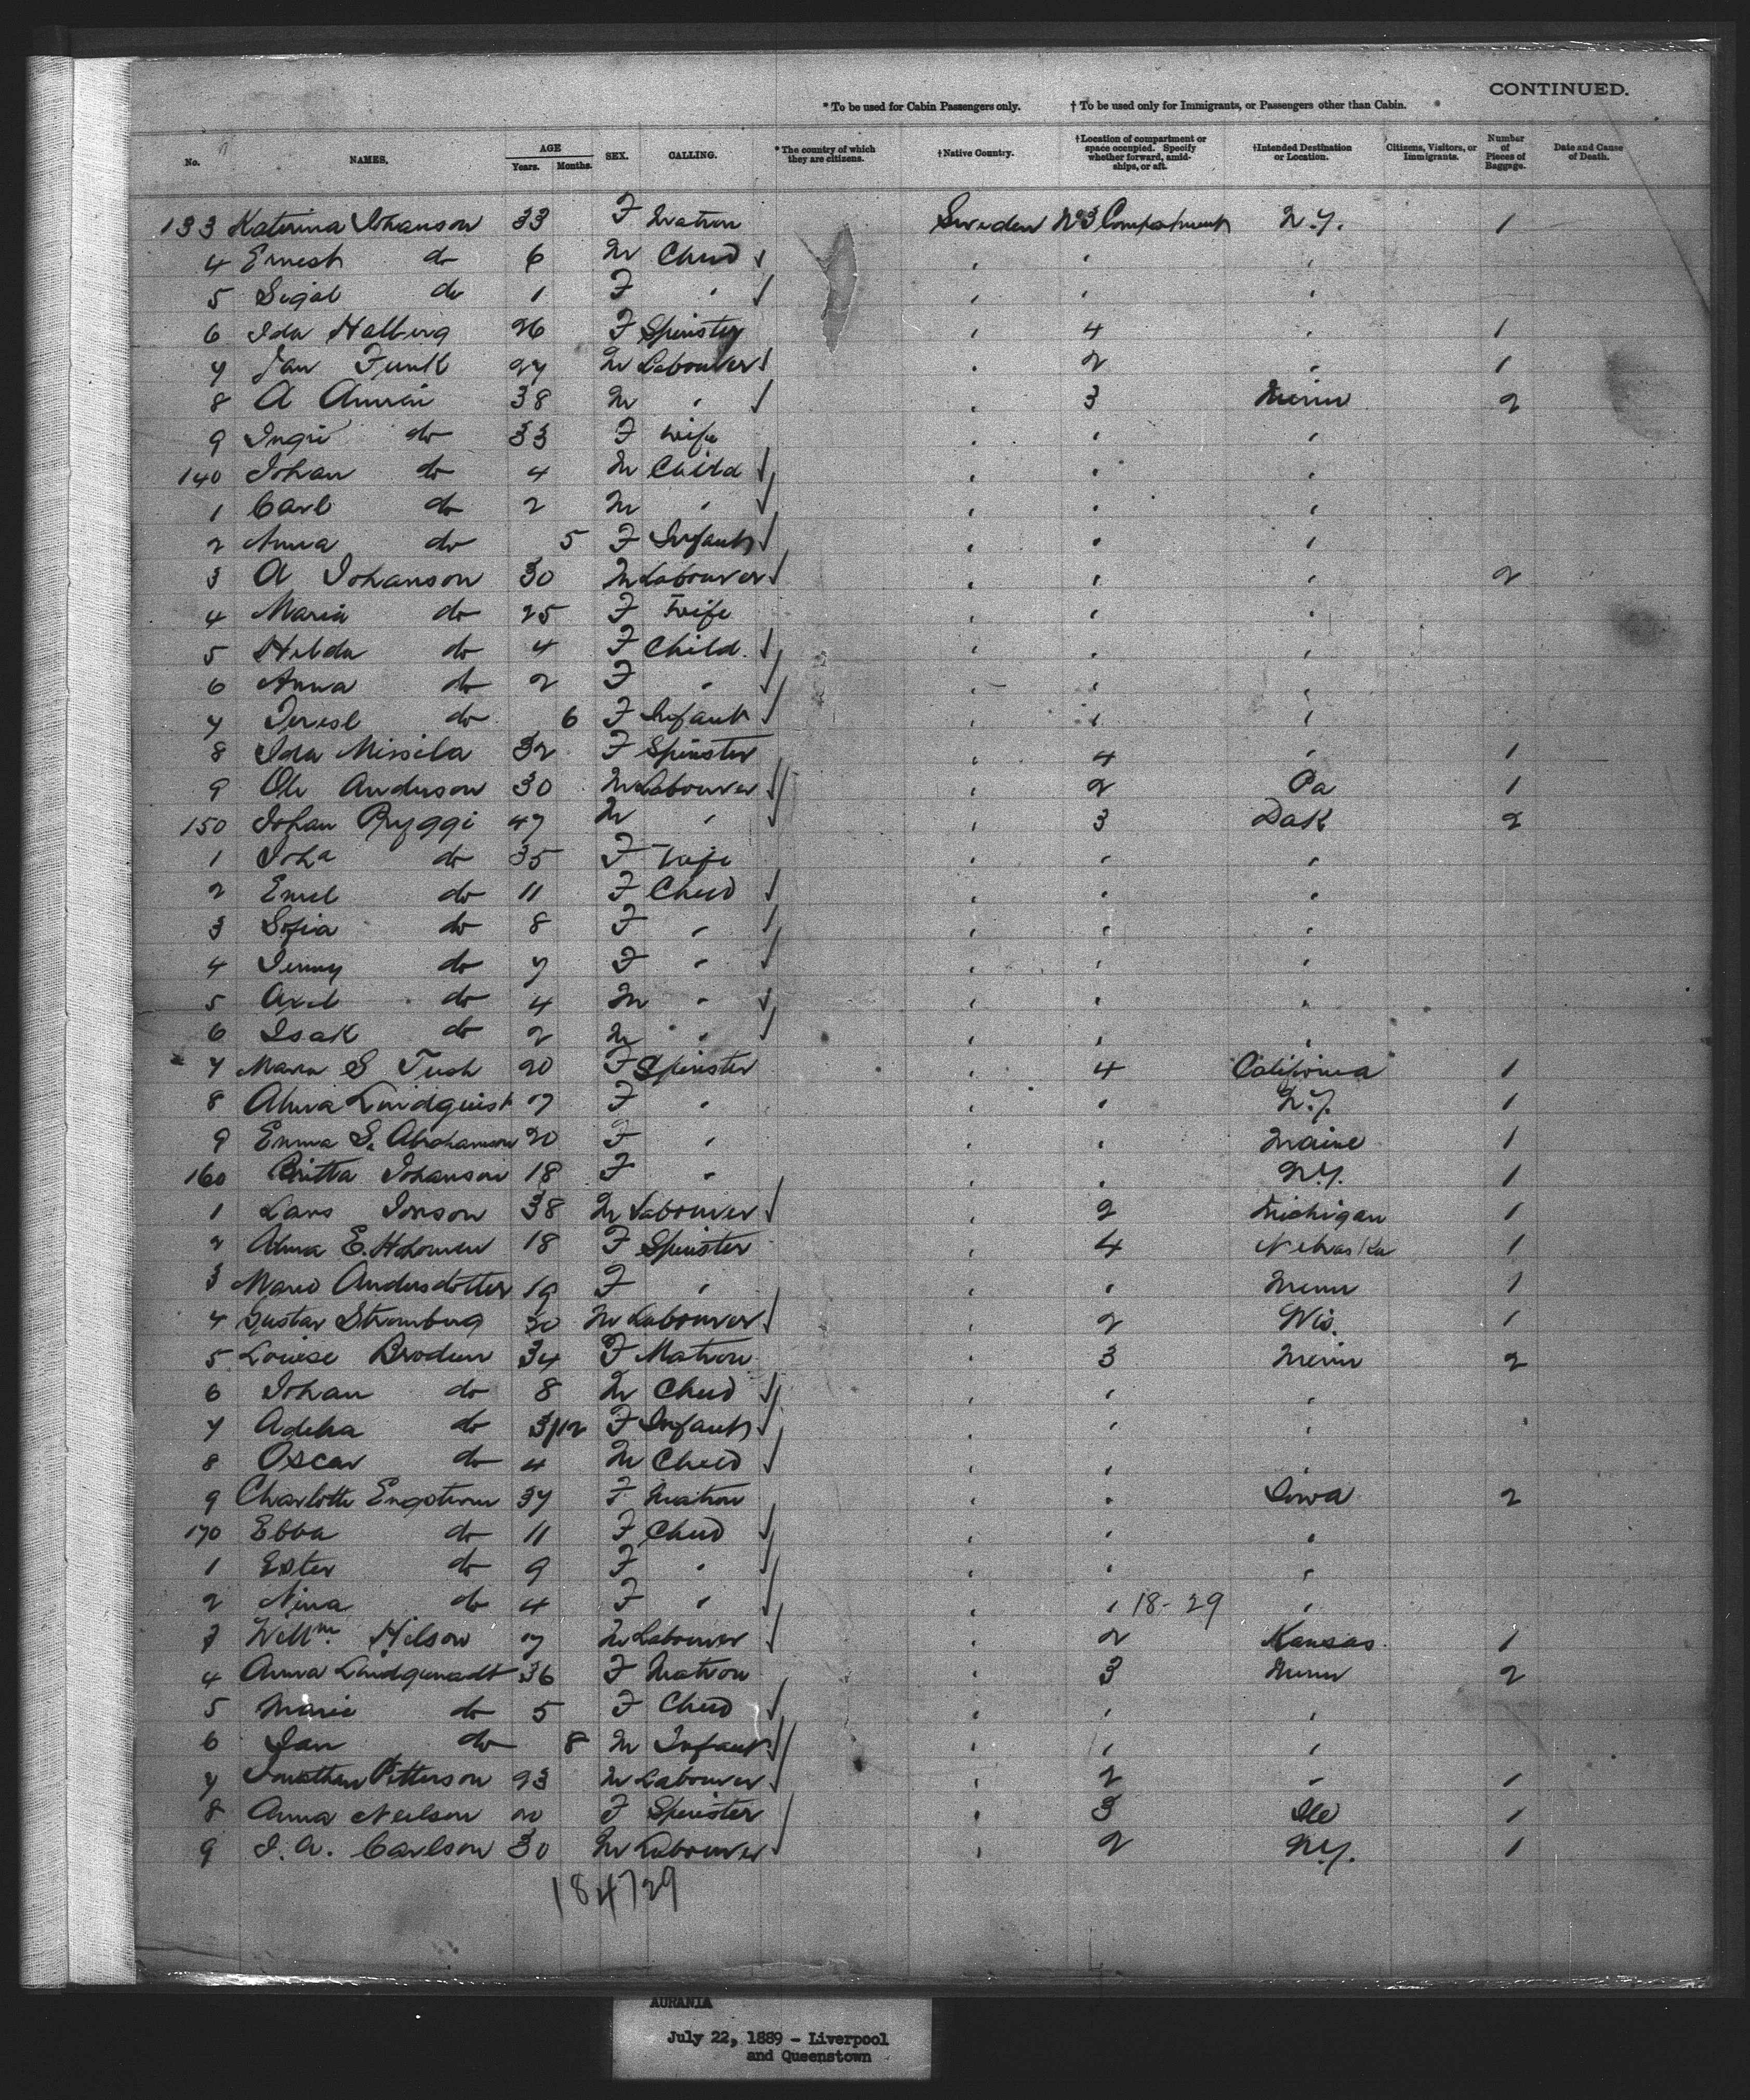 CONTINUED.
* To be used for Cabin Passengers only. † To be used only for Immigrants, or Passengers other than Cabin.
No. NAMES. AGE Years. Months. SEX. CALLING. * The country of which they are citizens. † Native Country. † Location of compartment or space occupied. Specify whether forward, amidships, or aft. † Intended Destination or Location. Citizens, Visitors, or Immigrants. Number of Pieces of Baggage. Date and Cause of Death.
133 Katerina Johanson 33 F Matron Sweden No 3 Compartment N.Y. 1
4 Ernest do 6 M Child
5 do 1 F "
6 Ida Hallberg 26 F Spinster " 4 " 1
7 Jan Funk 27 M Labourer " 2 " 1
8 A 38 M " " 3 Minn 2
9 Ingri do 33 F Wife " " "
140 Johan do 4 M Child " " "
1 Carl do 2 M " " " "
2 Anna do 5 F Infant " " "
3 A Johanson 30 M Labourer " " " 2
4 Maria do 25 F Wife " " "
5 Hilda do 4 F Child " " "
6 Anna do 2 F " " " "
7 do 6 F Infant " " "
8 Ida 32 F Spinster " 4 " 1
9 Ole Anderson 30 M Labourer " 2 Pa 1
150 Johan Ryggi 47 M " " 3 Dak 2
1 Joha do 35 F Wife " " "
2 Emel do 11 F Child " " "
3 Sofia do 8 F " " " "
4 Jenny do 7 F " " " "
5 Axel do 4 M " " " "
6 Isak do 2 M " " " "
7 Maria S 20 F Spinster " 4 California 1
8 Lindquist 17 F " " " N.Y. 1
9 Emma S. Abrahamson 20 F " " " Maine 1
160 Britta Johanson 18 F " " " N.Y. 1
1 Lars Jonson 38 M Labourer " 2 Michigan 1
2 Alma E. 18 F Spinster " 4 Nebraska 1
3 Andersdotter 19 F " " " Minn 1
4 Gustav Stromberg 30 M Labourer " 2 Wis. 1
5 Louise Brodeen 34 F Matron " 3 Minn 2
6 Johan do 8 M Child " " "
7 Adelia do 3/12 F Infant " " "
8 Oscar do 4 M Child " " "
9 Charlotte Engstrom 37 F Matron " " Iowa 2
170 Ebba do 11 F Child " " "
1 Ester do 9 F " " " "
2 Nina do 4 F " " " 18-29 "
3 Willm. 17 M Labourer " 2 Kansas 1
4 Anna 36 F Matron " 3 Minn 2
5 Marie do 5 F Child " " "
6 Jan do 8 M Infant " " "
7 Jonathan Petterson 23 M Labourer " 2 " 1
8 Anna Neilson 20 F Spinster " 3 Ill 1
9 J. A. Carlson 30 M Labourer " 2 N.Y. 1
184729
AURANIA
July 22, 1889 - Liverpool
and Queenstown